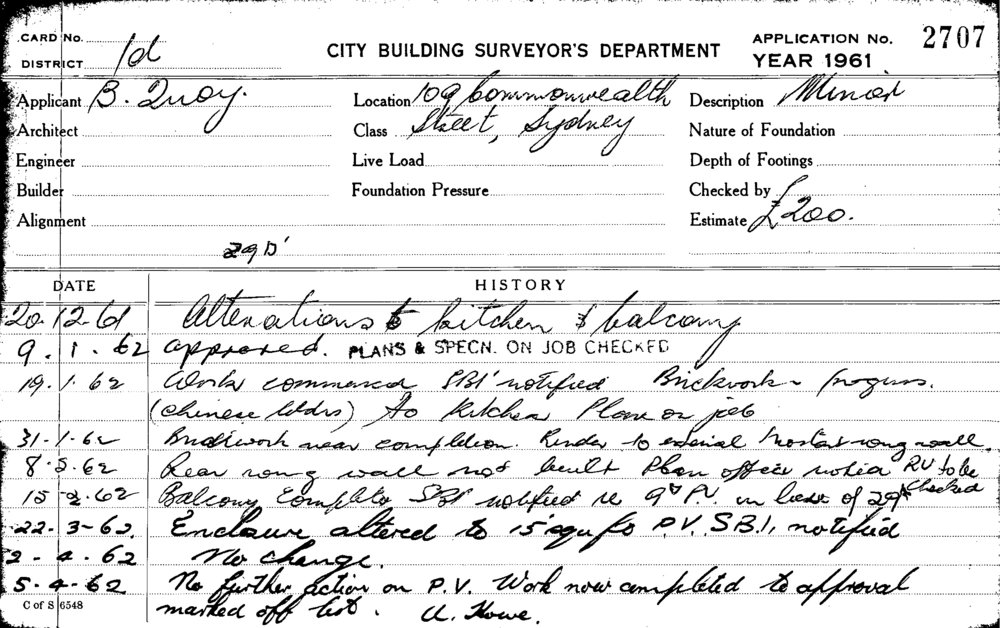 CARD No.
DISTRICT 1d
CITY BUILDING SURVEYOR'S DEPARTMENT
APPLICATION No. 2707
YEAR 1961
Applicant B. Quoy.
Location 109 Commonwealth
Description Minor
Architect
Class Street, Sydney
Nature of Foundation
Engineer
Live Load
Depth of Footings
Builder
Foundation Pressure
Checked by
Alignment
Estimate £200.
29 D'
DATE HISTORY
20.12.61 Alterations to kitchen & balcony
9.1.62 approved. PLANS & SPECN. ON JOB CHECKED
19.1.62 Work commenced SBI notified Brickwork in progress.
(Chinese bldrs) To Kitchen Plan on job
31-1-62 Brickwork near completion. Render to external wall.
8.2.62 Rear wall not built Plan office RV to be
15-2.62 Balcony Complete SBI notified re 9" PV. in lieu of 29" checked
22-3-62. Enclosure altered to 15 P.V. S.B.I. notified
2-4.62 No change.
5.4.62 No further action on P.V. Work now completed to approval
C of S 6548 marked off list. A. Howe.